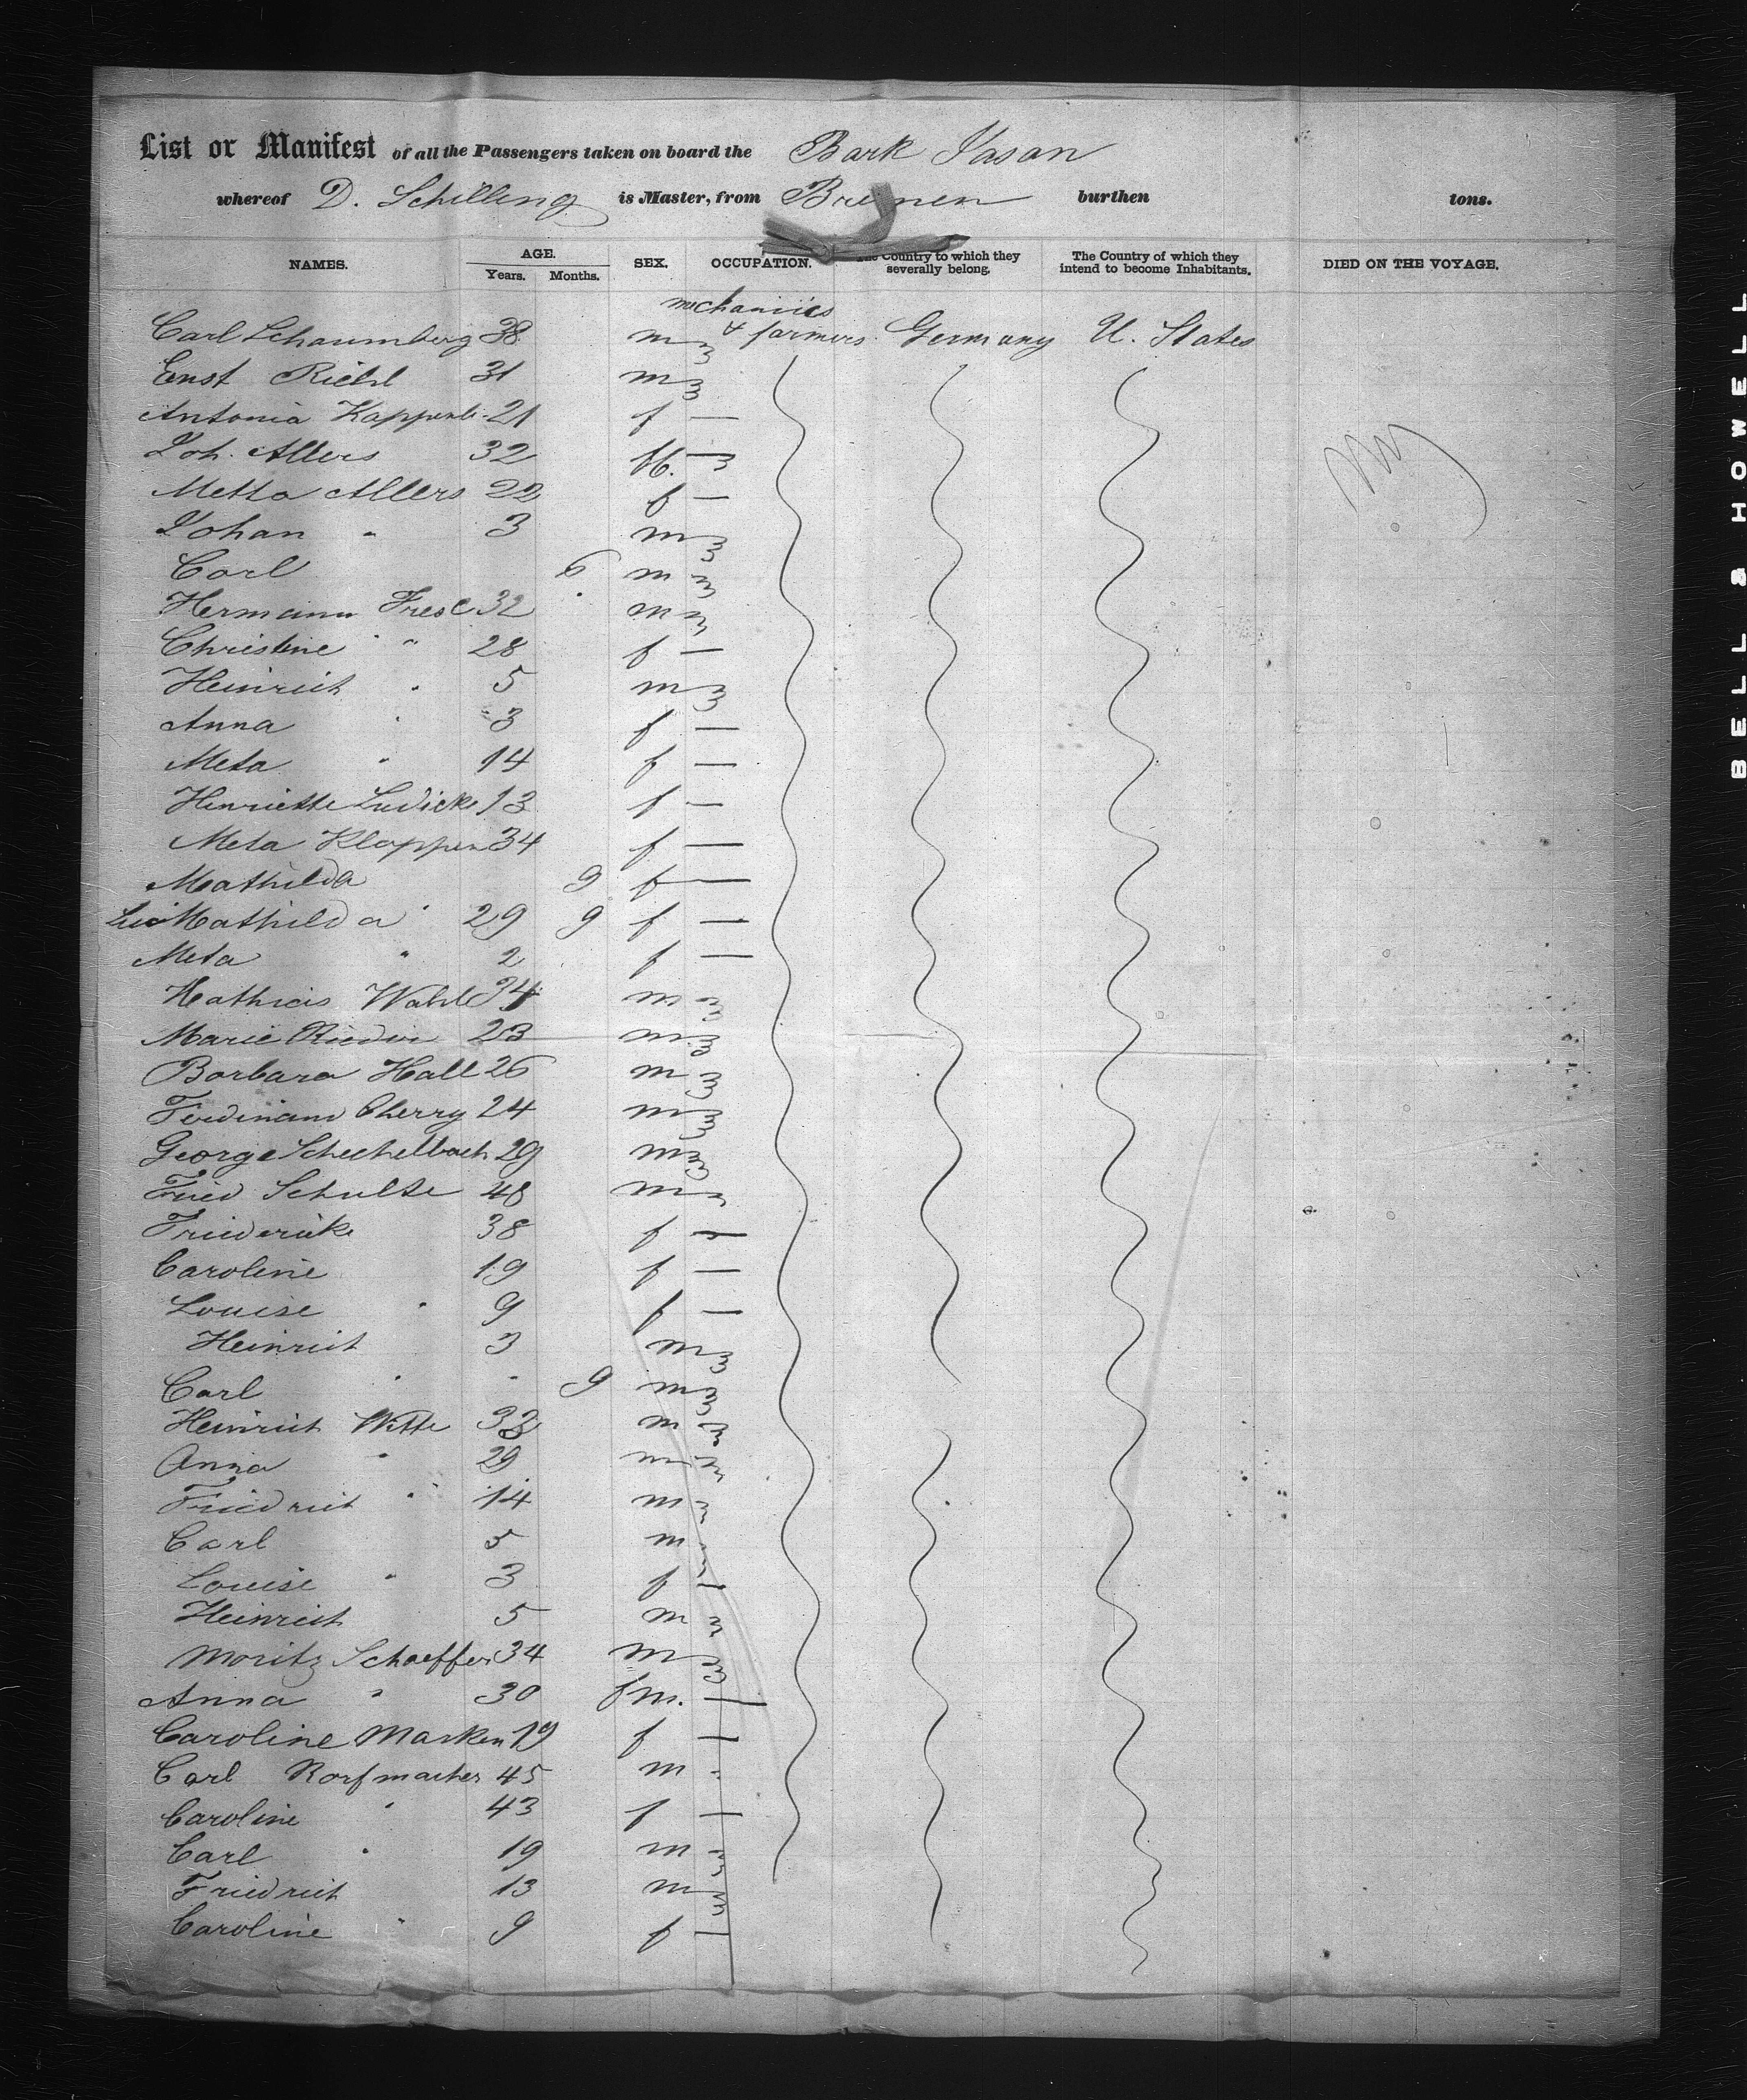 List or Manifest of all the Passengers taken on board the Bark Jason
whereof D. Schilling is Master, from Bremen burthen tons.
NAMES. AGE. Years. Months. SEX. OCCUPATION. The Country to which they severally belong. The Country of which they intend to become Inhabitants. DIED ON THE VOYAGE.
mechanics
Carl Schaumberg 38 m & farmers Germany U. States
Enst Riehl 31 m
Antonia 21 f —
Joh. Allers 32 —
Metta Allers 22 f —
Johan " 3 m
Carl 6 m
Hermann Frese 32 m
Christine " 28 f —
Heinrich " 5 m
Anna " 3 f —
Meta " 14 f —
Henriette Ludicke 13 f —
Meta Kloppen 34 f —
Mathilda 9 f —
Mathilda " 29 9 f —
Meta " 2 f —
Mathias Wahl 34 m
Marie 23 m
Barbara Hall 26 m
Ferdinand Cherry 24 m
George Schechelbach 29 m
Fried Schulte 48 m
Friederike 38 f —
Caroline 19 f —
Louise " 9 f —
Heinrich 3 m
Carl " 9 m
Heinrich Witte 32 m
Anna " 29 m
Friedrich " 14 m
Carl 5 m
Louise " 3 f —
Heinrich 5 m
Moritz Schaeffer 34 m
Anna " 30 fm. —
Caroline Marken 19 f —
Carl Rorfmacher 45 m
Caroline " 43 f —
Carl " 19 m
Friedrich 13 m
Caroline " 9 f —
BELL & HOWELL